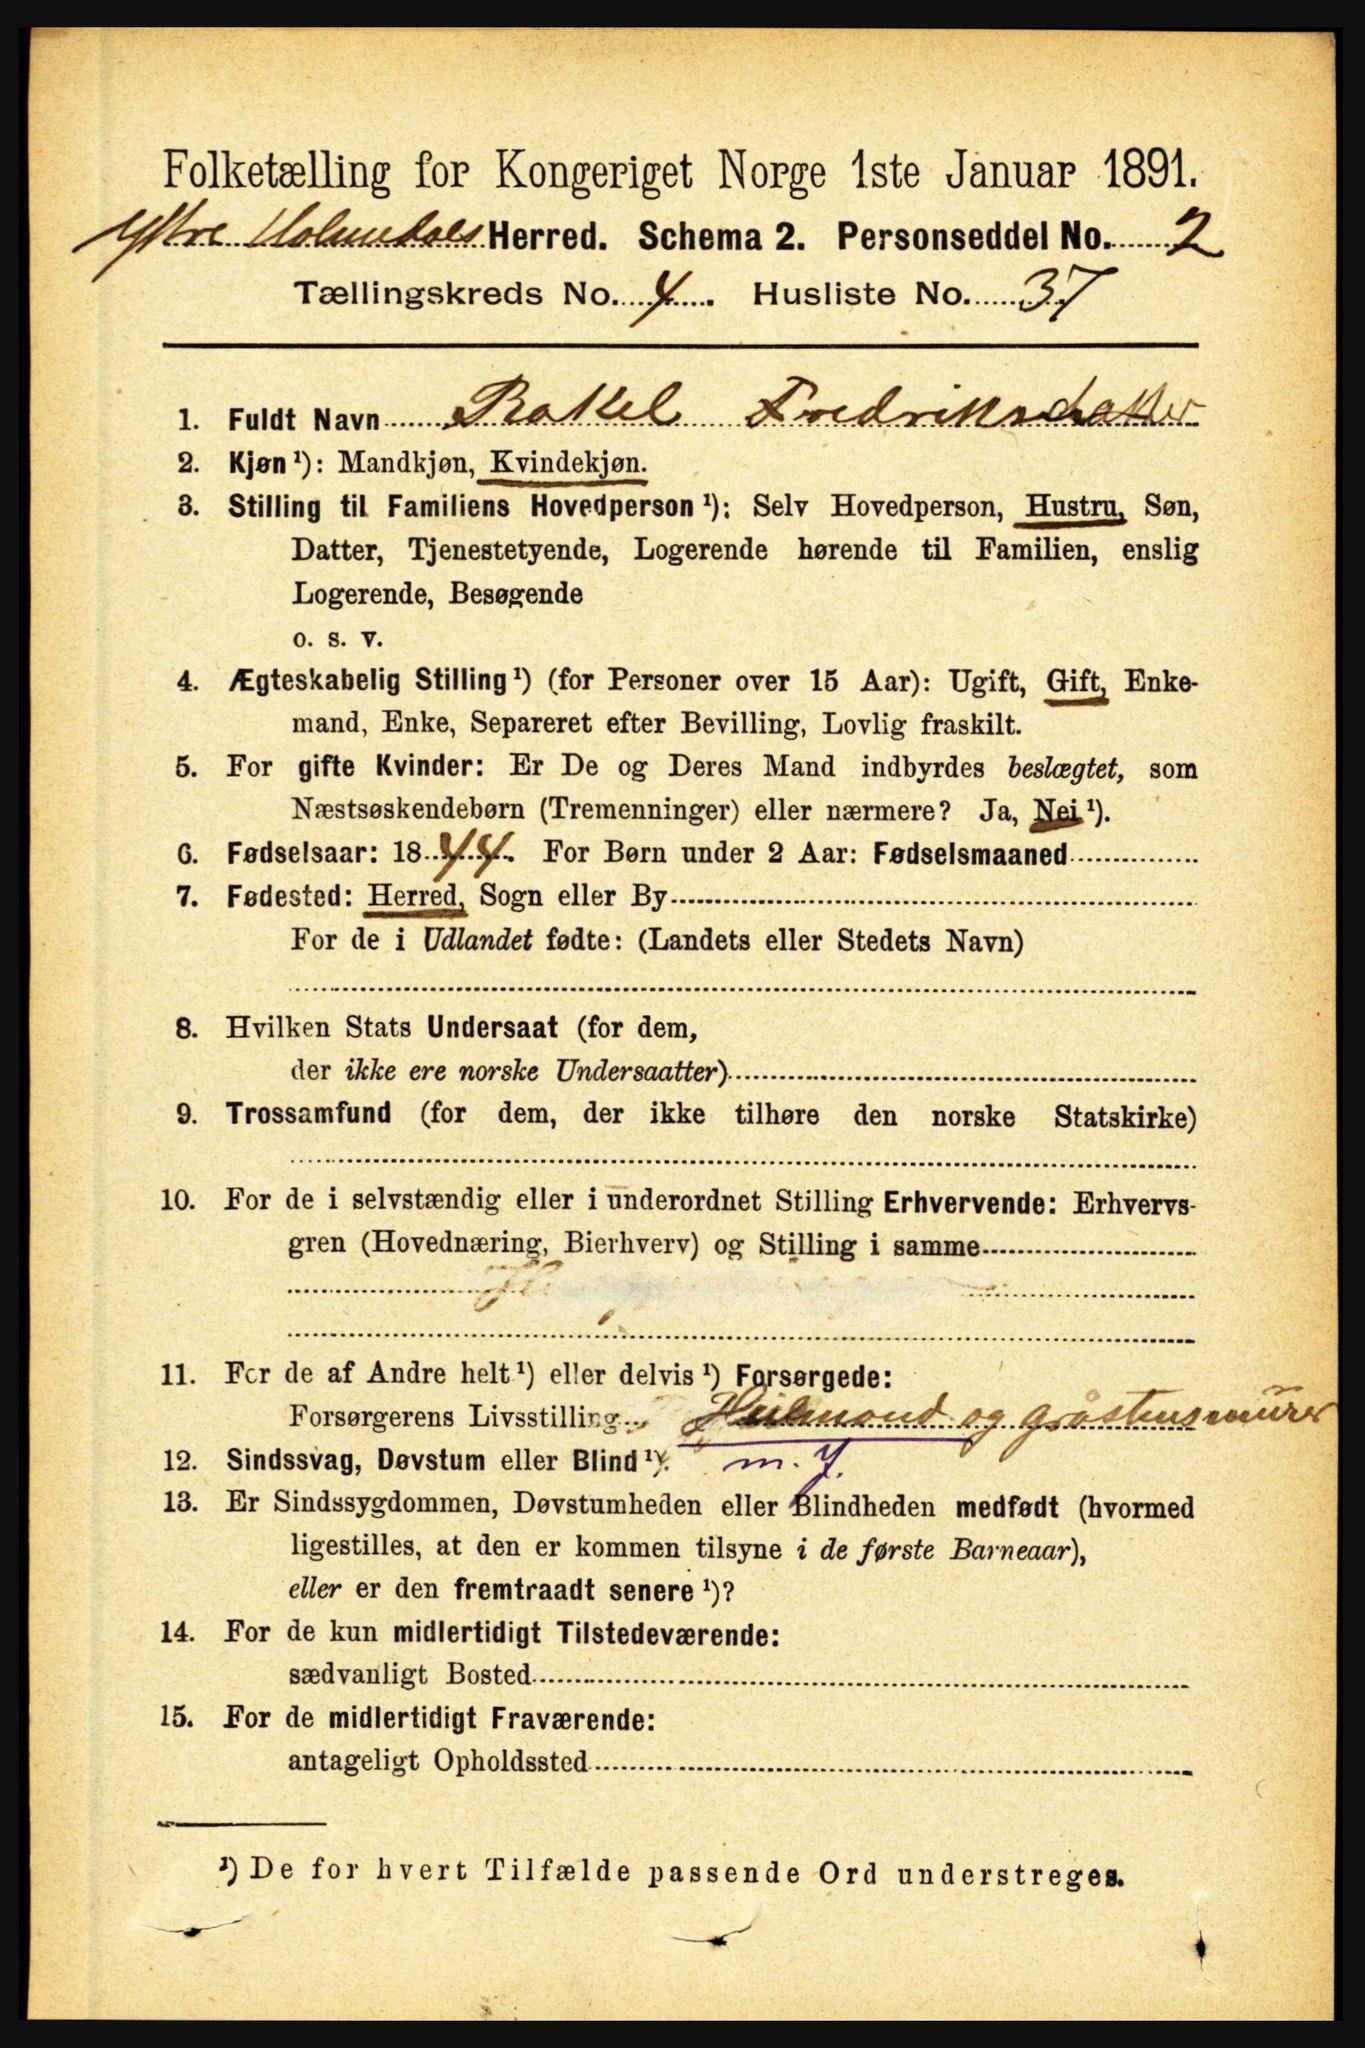 Folketælling for Kongeriget Norge 1ste Januar 1891.
Ytre Holmedals Herred. Schema 2. Personseddel No. 2
Tællingskreds No. 4. Husliste No. 37
1. Fuldt Navn Rakel Fredriksdatter
2. Kjøn ¹): Mandkjøn, Kvindekjøn.
3. Stilling til Familiens Hovedperson ¹): Selv Hovedperson, Hustru, Søn,
Datter, Tjenestetyende, Logerende hørende til Familien, enslig
Logerende, Besøgende
o. s. v.
4. Ægteskabelig Stilling ¹) (for Personer over 15 Aar): Ugift, Gift, Enke-
mand, Enke, Separeret efter Bevilling, Lovlig fraskilt.
5. For gifte Kvinder: Er De og Deres Mand indbyrdes beslægtet, som
Næstsøskendebørn (Tremenninger) eller nærmere? Ja, Nei ¹).
6. Fødselsaar: 1844. For Børn under 2 Aar: Fødselsmaaned
7. Fødested: Herred, Sogn eller By
For de i Udlandet fødte: (Landets eller Stedets Navn)
8. Hvilken Stats Undersaat (for dem,
der ikke ere norske Undersaatter)
9. Trossamfund (for dem, der ikke tilhøre den norske Statskirke)
10. For de i selvstændig eller i underordnet Stilling Erhvervende: Erhvervs-
gren (Hovednæring, Bierhverv) og Stilling i samme
11. For de af Andre helt ¹) eller delvis ¹) Forsørgede:
Forsørgerens Livsstilling Husmand og gråstensmurer
12. Sindssvag, Døvstum eller Blind ¹). m. J.
13. Er Sindssygdommen, Døvstumheden eller Blindheden medfødt (hvormed
ligestilles, at den er kommen tilsyne i de første Barneaar),
eller er den fremtraadt senere ¹)?
14. For de kun midlertidigt Tilstedeværende:
sædvanligt Bosted
15. For de midlertidigt Fraværende:
antageligt Opholdssted
¹) De for hvert Tilfælde passende Ord understreges.